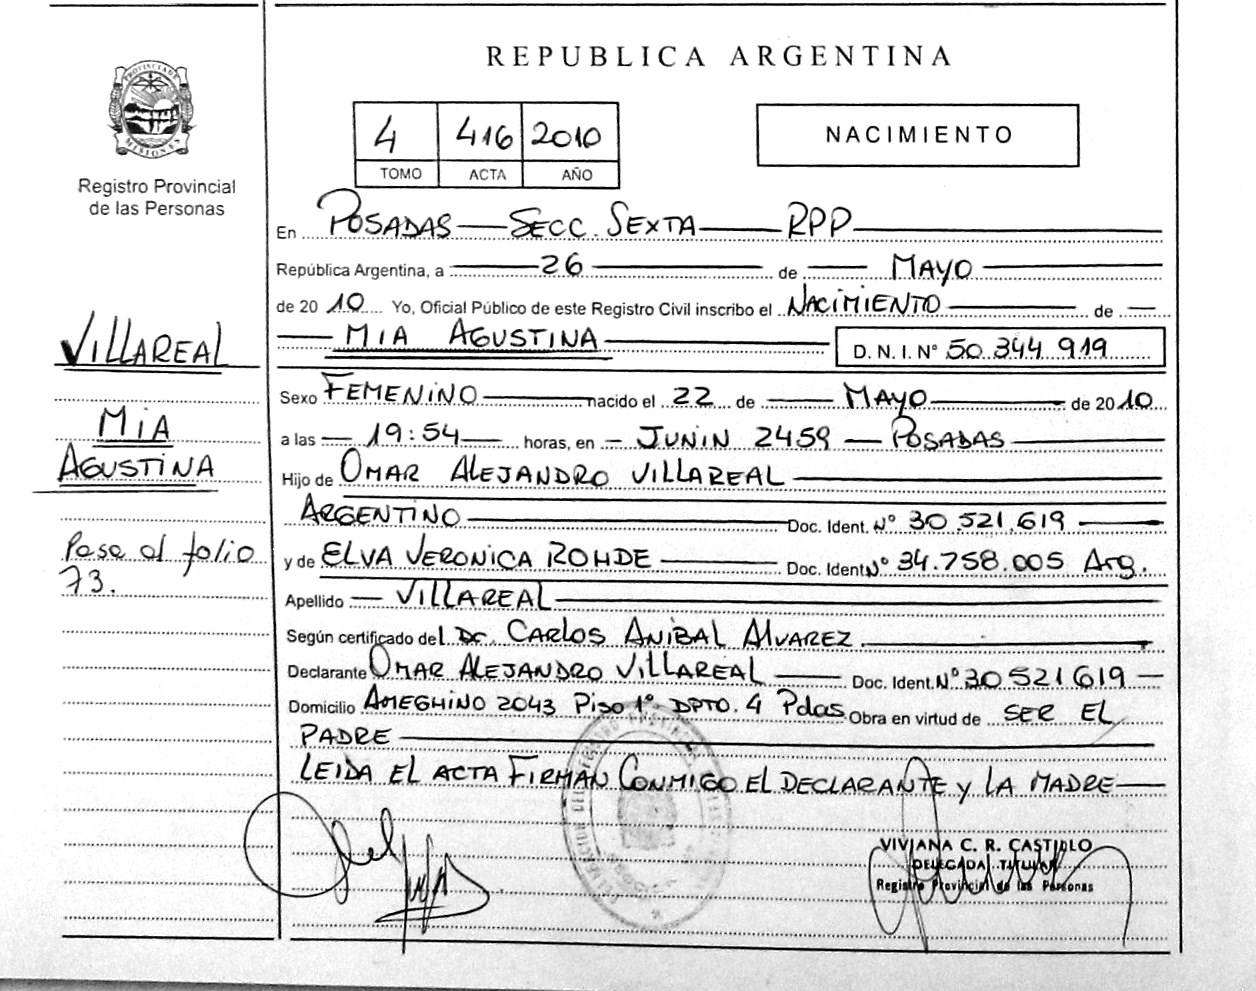 REPUBLICA ARGENTINA
PROVINCIA DE
MISIONES
Registro Provincial
de las Personas
4 416 2010
TOMO ACTA AÑO
NACIMIENTO
En POSADAS — SECC. SEXTA — RPP
República Argentina, a 26 de MAYO
de 2010 Yo, Oficial Público de este Registro Civil inscribo el NACIMIENTO de
MIA AGUSTINA D.N.I. Nº 50.344.919
Sexo FEMENINO nacido el 22 de MAYO de 2010
a las 19:54 horas, en JUNIN 2459 — POSADAS
Hijo de OMAR ALEJANDRO VILLAREAL
ARGENTINO Doc. Ident. Nº 30.521.619
y de ELVA VERONICA ROHDE Doc. Ident. Nº 34.758.005 Arg.
Apellido VILLAREAL
Según certificado del Dr. CARLOS ANIBAL ALVAREZ
Declarante OMAR ALEJANDRO VILLAREAL Doc. Ident. Nº 30521619
Domicilio AMEGHINO 2043 Piso 1º DPTO. 4 Pdas Obra en virtud de SER EL
PADRE
LEIDA EL ACTA FIRMAN CONMIGO EL DECLARANTE y LA MADRE
VIVIANA C. R. CASTILLO
DELEGADA TITULAR
Registro Provincial de las Personas
VILLAREAL
MIA
AGUSTINA
Pasa al folio
73.